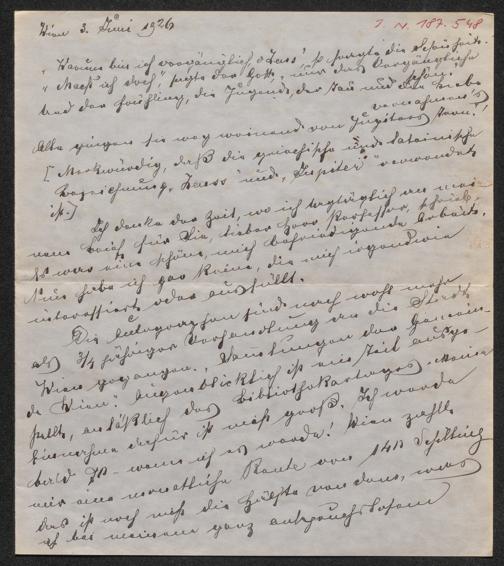 Wien 3. Juni 1926
I. N. 187.548
"Warum bin ich vergänglich, o Zeus?" so fragte die Schönheit.
"Macht ich doch", sagte der Gott, "nur das Vergängliche schön."
Und die Liebe, die Blumen, der Tau und die Jugend vernahmen's
Alle gingen sie weg weinend von Jupiters Thron.
[Merkwürdig, daß die griechische und lateinische
Bezeichnung "Zeus" und "Jupiter" verwendet
ist.]
Ich denke der Zeit, wo ich tagtäglich an mei-
nem Buch für Sie, lieber Herr Professor, schrieb.
Es war eine schöne, mich befriedigende Arbeit.
Nun habe ich gar keine, die mich irgendwie
interessiert oder ausfüllt.
Die Autographen sind nach wohl mehr
als 3/4 jähriger Verhandlung an die Stadt
Wien gegangen. "Sammlungen der Gemein-
de Wien". Augenblicklich ist ein Teil ausge-
stellt, anläßlich des Bibliothekartages. Meine
Einnahme dafür ist nicht groß. Ich werde
bald 78 - wenn ich es werde! Wien zahlt
mir eine monatliche Rente von 140 Schilling
das ist noch nicht die Hälfte von dem, was
ich bei meinem ganz anspruchslosen